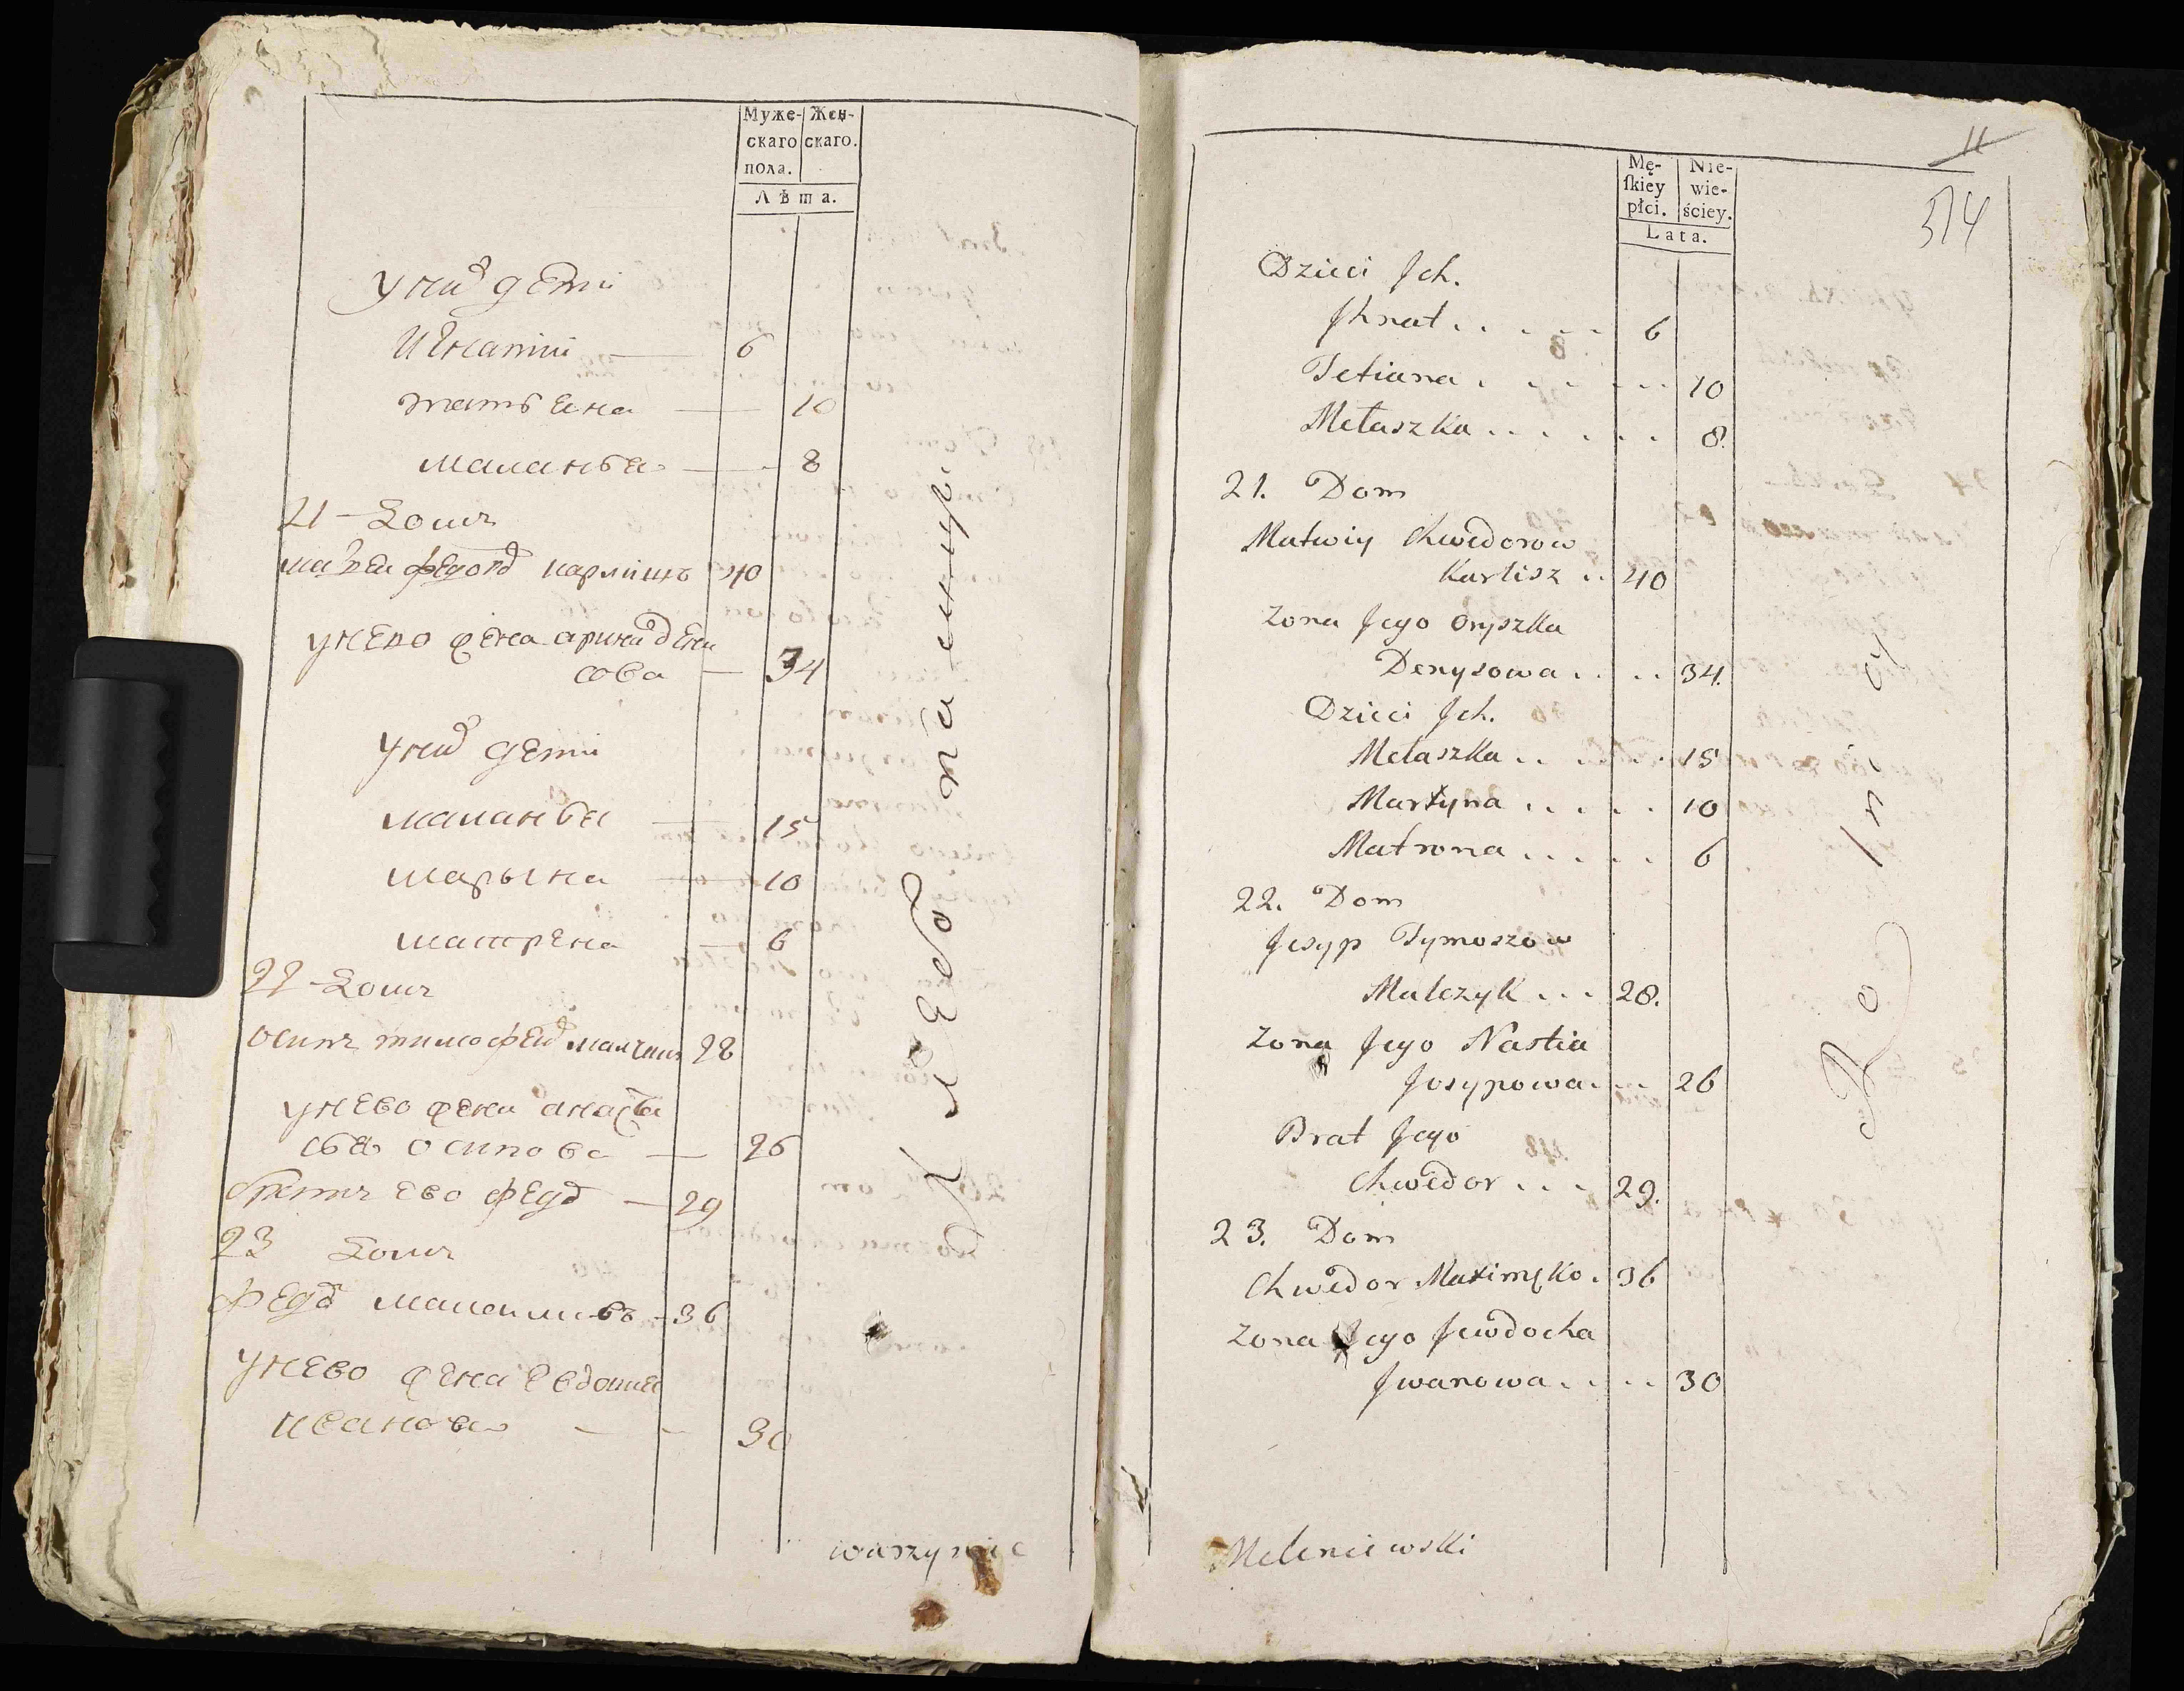 Муже- Жен-
скаго скаго.
пола.
Лѣта.
у них дети
Игнатий — 6
татьяна — 10
маланья — 8
21 - Домъ
матвеи федоров карлишъ 40
у нево жена арина дени
сова — 34
у них дети
маланья — 15
марына — 10
матрена — 6
22 - Домъ
осипъ тимофеив малчикъ 28
у нево жена анаста
сья осипова — 26
братъ ево федор — 29
23 Домъ
федор максимовъ - 36
у нево жена евдокия
иванова — 30
waszynie
11
574
Mę- Nie-
ſkiey wie-
płci. ściey.
Lata.
Dzieci Jch.
Jhnat . . . . . 6
Tetiana . . . . . . 10
Mełaszka . . . . . . 8.
21. Dom
Matwiy Chwedorow
Karlisz .. 40
Zona Jego Oryszka
Denysowa . . . . 34.
Dzieci Jch.
Mełaszka . . . . . 15
Martyna . . . . . 10
Matrona . . . . . 6
22. Dom
Jesyp Tymoszow
Malczyk . . . 28.
Zona Jego Nastia
Josypowa . . . 26
Brat Jego
Chwedor . . . 29.
23. Dom
Chwedor Maximęko . 36
Zona Jego Jewdocha
Jwanowa . . . . 30
Meleniewski